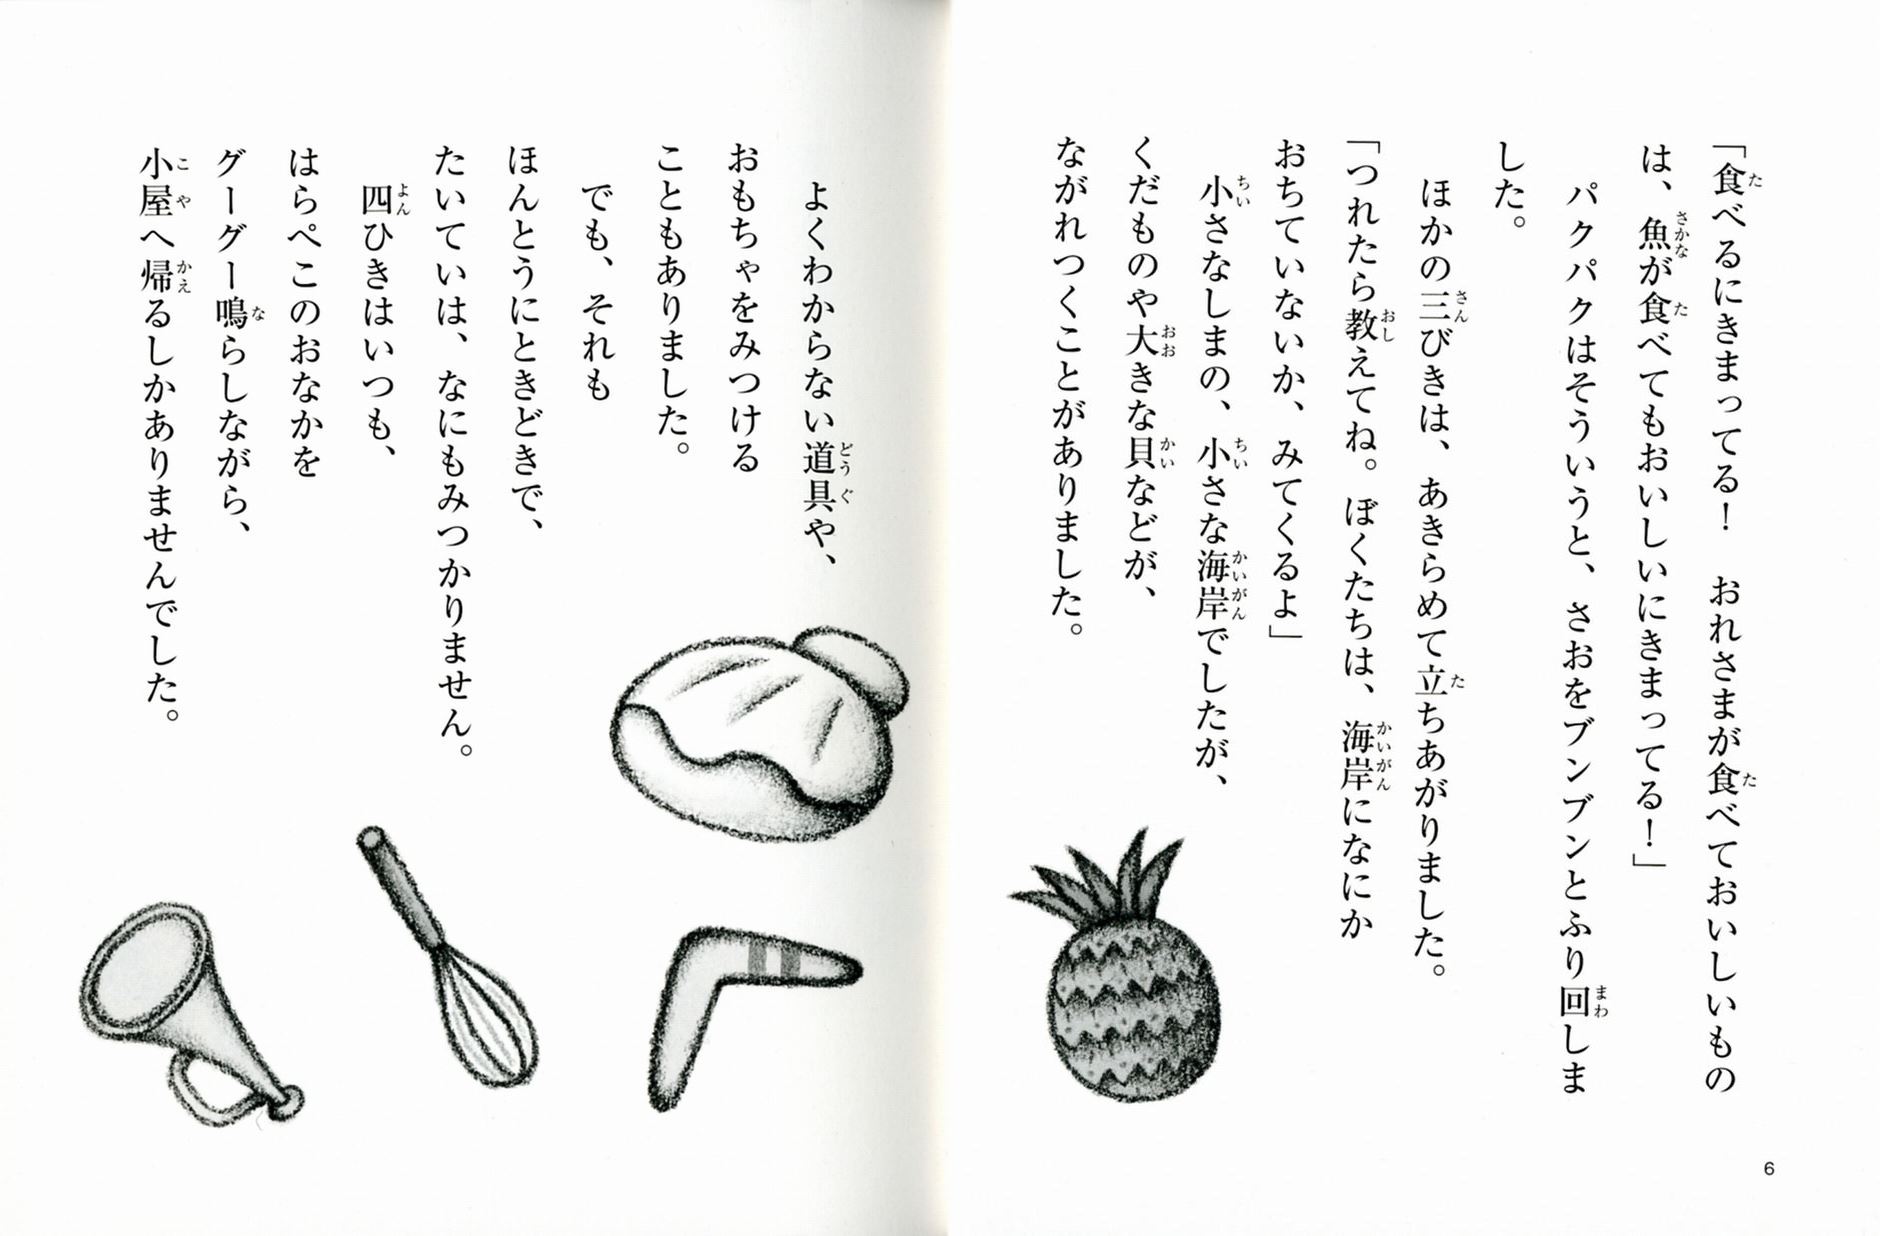 「食べるにきまってる！　おれさまが食べておいしいもの
は、魚が食べてもおいしいにきまってる！」
　パクパクはそういうと、さおをブンブンとふり回しま
した。
　ほかの三びきは、あきらめて立ちあがりました。
「つれたら教えてね。ぼくたちは、海岸になにか
おちていないか、みてくるよ」
　小さなしまの、小さな海岸でしたが、
くだものや大きな貝などが、
ながれつくことがありました。
6
　よくわからない道具や、
おもちゃをみつける
こともありました。
　でも、それも
ほんとうにときどきで、
たいていは、なにもみつかりません。
　四ひきはいつも、
はらぺこのおなかを
グーグー鳴らしながら、
小屋へ帰るしかありませんでした。